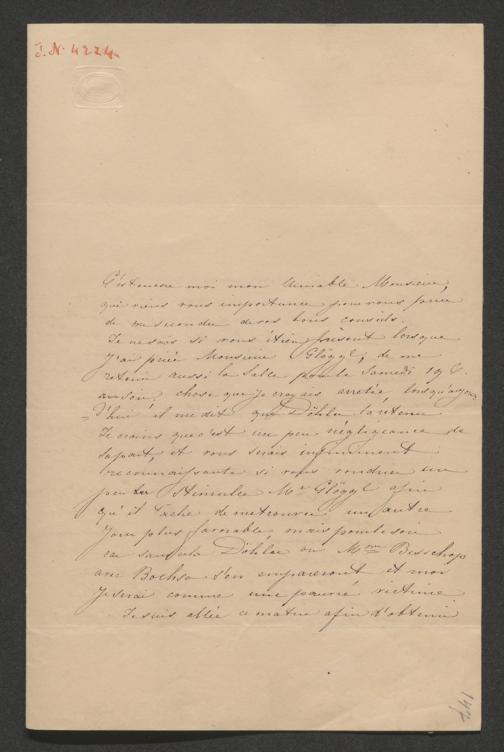 I.N. 4224
C'est encore moi mon aimable Monsieur,
qui viens vous importuner pour vous
de me seconder de vos bons conseils.
Je ne sais si vous étiez présent lorsque
j'ai priée Monsieur Glöggl, de me
retenir aussi la Salle pour le Samedi 19 t.
au soir, chose que je croyais arretée, lorsqu'aujour
=d'hui il me dit que Döhler la retenu
Je crains que c'est un peu négligeance de
sa part, et vous serais infiniment
reconnaissante si vous voudriez un
peu stimuler Mr Glöggl afin
qu'il tâche de me trouver un autre
jour plus favorable, mais pour le soir
car sans cela Döhler ou Mme Bisschop
avec Bochsa s'en empareront et moi
je serai comme une pauvre victime.
Je suis allée ce matin afin d'obtenir
141